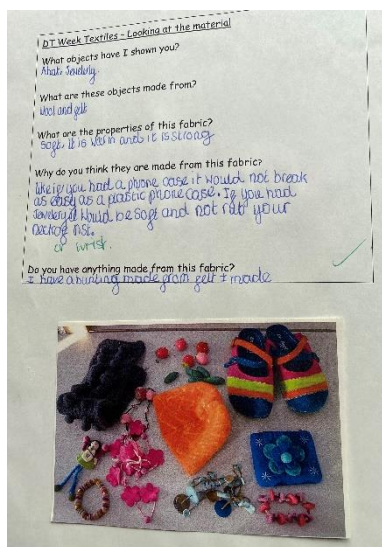 DT Week Textiles - Looking at the material
What objects have I shown you?
Ahat, Jewelery.
What are these objects made from?
Wool and felt
What are the properties of this fabric?
Soft, it is warm and it is strong
Why do you think they are made from this fabric?
like if you had a phone case it would not break
as easy as a plastic phone case. If you had
Jewelery it would be soft and not rub your
neck or rist.
or wrist.
Do you have anything made from this fabric?
I have a bunting made from felt I made